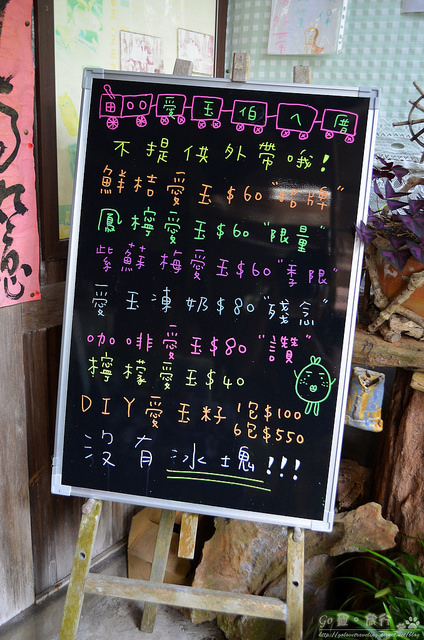 愛玉伯ㄟ厝
不提供外帶哦!
鮮桔愛玉$60"招牌"
鳳檸愛玉$60"限量"
紫蘇梅愛玉$60"季限"
愛玉凍奶$80"殘念"
咖啡愛玉$80"讚"
檸檬愛玉$40
DIY愛玉籽 1包$100
6包$550
沒有冰塊!!!
Go 靈。旅行